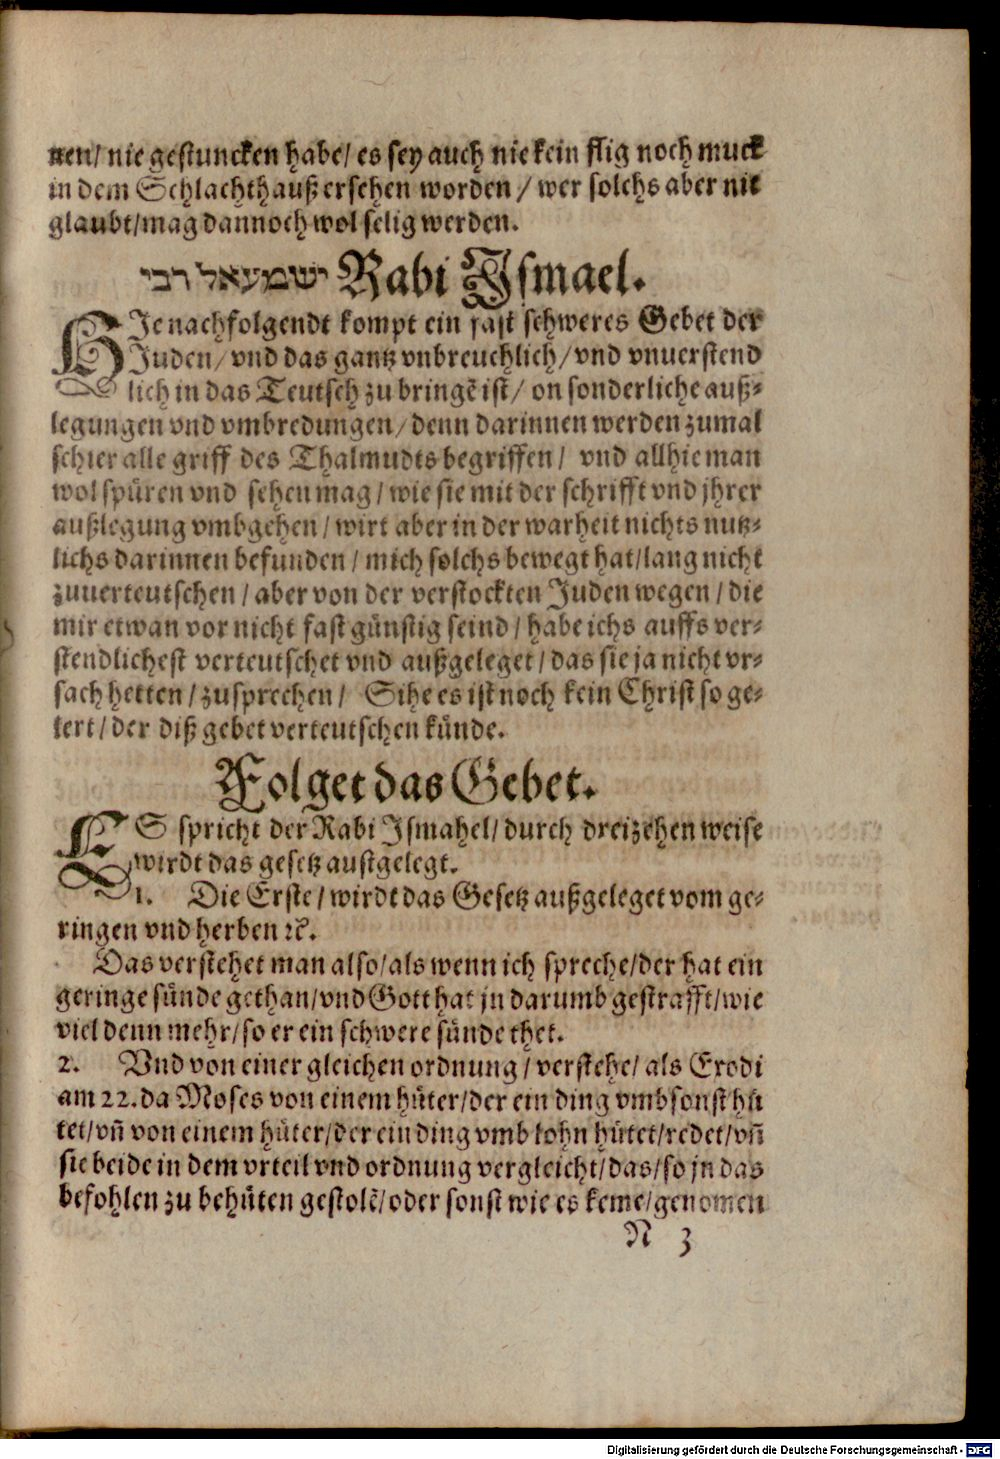 nen/ nie gestuncken habe/ es sey auch nie kein flig noch muck
in dem Schlachthauß ersehen worden / wer solchs aber nit
glaubt/mag dannoch wol selig werden.
ישמעאל רבי Rabi Ismael.
HIe nachfolgendt kompt ein fast schweres Gebet der
Juden/ vnd das gantz vnbreuchlich/ vnd vnuerstend
lich in das Teutsch zu bringē ist/ on sonderliche auß-
legungen vnd vmbredungen/ denn darinnen werden zumal
schier alle griff des Thalmudts begriffen/ vnd allhie man
wol spüren vnd sehen mag/ wie sie mit der schrifft vnd jhrer
außlegung vmbgehen/ wirt aber in der warheit nichts nutz-
lichs darinnen befunden/ mich solchs bewegt hat/lang nicht
zuuerteutschen/ aber von der verstockten Juden wegen/ die
mir etwan vor nicht fast günstig seind/ habe ichs auffs ver-
stendlichest verteutschet vnd außgeleget/ das sie ja nicht vr-
sach hetten/ zusprechen/ Sihe es ist noch kein Christ so ge-
lert/ der diß gebet verteutschen künde.
Folget das Gebet.
ES spricht der Rabi Ismahel/ durch dreizehen weise
wirdt das gesetz austgelegt.
1. Die Erste/ wirdt das Gesetz außgeleget vom ge-
ringen vnd herben ꝛc̃.
Das verstehet man also/ als wenn ich spreche/der hat ein
geringe sünde gethan/vnd Gott hat jn darumb gestrafft/wie
viel denn mehr/ so er ein schwere sünde thet.
2. Vnd von einer gleichen ordnung/ verstehe/ als Exodi
am 22. da Moses von einem hüter/der ein ding vmbsonst hü
tet/vñ von einem hüter/der ein ding vmb lohn hütet/redet/vñ
sie beide in dem vrteil vnd ordnung vergleicht/das/so jn das
befohlen zu behüten gestolē/oder sonst wie es keme/genomen
N 3
Digitalisierung gefördert durch die Deutsche Forschungsgemeinschaft - DFG